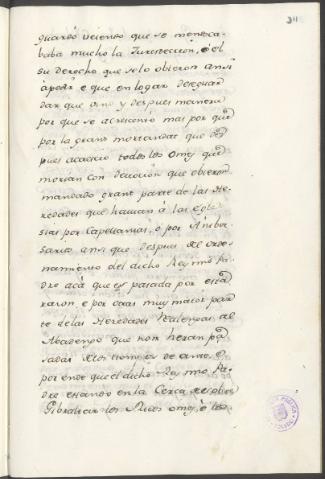 311
guardó veiendo que se menosca-
baba mucho la Jurisdiccion, è el
su derecho que selo obieron ansi
à pedir è que en logar de seguar-
dar que ante y despues manera
por que se acrescento mas por que
por la grant mortandat que des
pues acaescio todos los Omes que
morian con devocion que obieron
mandado grant parte de las He-
redades que havian à las Egle-
sias por Capellanias, o por Aniber-
sarios ansi que despues del orde-
namiento del dicho Rey mio Pa-
dre acà que es pasada por esta
razon è por otras muy maior par-
te delas Heredades Realengas al
Abadengo que non heran pa-
sadas en los tiempos de ante, è
por ende que el dicho Rey mio Pa-
dre estando en la Cerca de sobre
Gibraltar los Ricos omes, è los